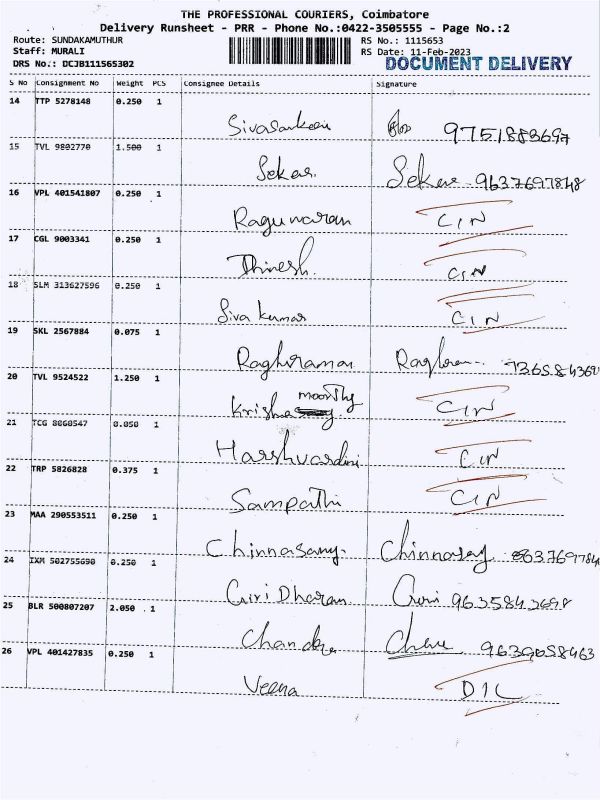 THE PROFESSIONAL COURIERS, Coimbatore
Delivery Runsheet - PRR - Phone No.:0422-3505555 - Page No.:2
Route: SUNDAKAMUTHUR RS No.: 1115653
Staff: MURALI RS Date: 11-Feb-2023
DRS No.: DCJB111565302 DOCUMENT DELIVERY
S No Consignment No Weight PCS Consignee Details Signature
14 TTP 5278148 0.250 1
9751883697
15 TVL 9802770 1.500 1
Sekar. Sekar 9637697848
16 VPL 401541807 0.250 1
Raguvaran CIN
17 CGL 9003341 0.250 1
Dhinesh. CIN
18 SLM 313627596 0.250 1
Siva kumar CIN
19 SKL 2567884 0.075 1
Raghuraman
20 TVL 9524522 1.250 1
Krishna moorthy CIN
21 TCG 8060547 0.050 1
Harshvardini CIN
22 TRP 5826828 0.375 1
Sampathi CIN
23 MAA 290553511 0.250 1
Chinnasamy. Chinnasay
24 IXM 502755690 0.250 1
Giri Dharan Giri 9635843698
25 BLR 500807207 2.050 1
9639058463
26 VPL 401427835 0.250 1
Veena DIL